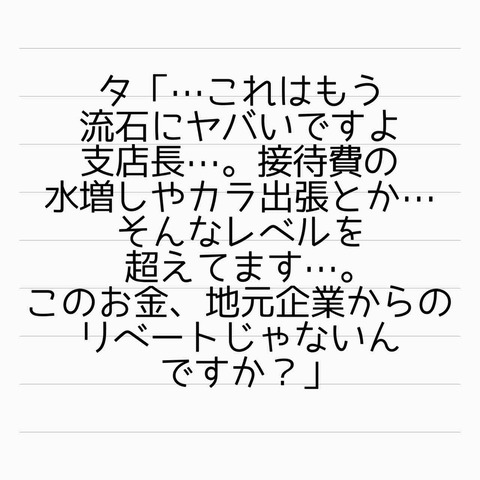 タ「…これはもう
流石にヤバいですよ
支店長…。接待費の
水増しやカラ出張とか…
そんなレベルを
超えてます…。
このお金、地元企業からの
リベートじゃないん
ですか？」